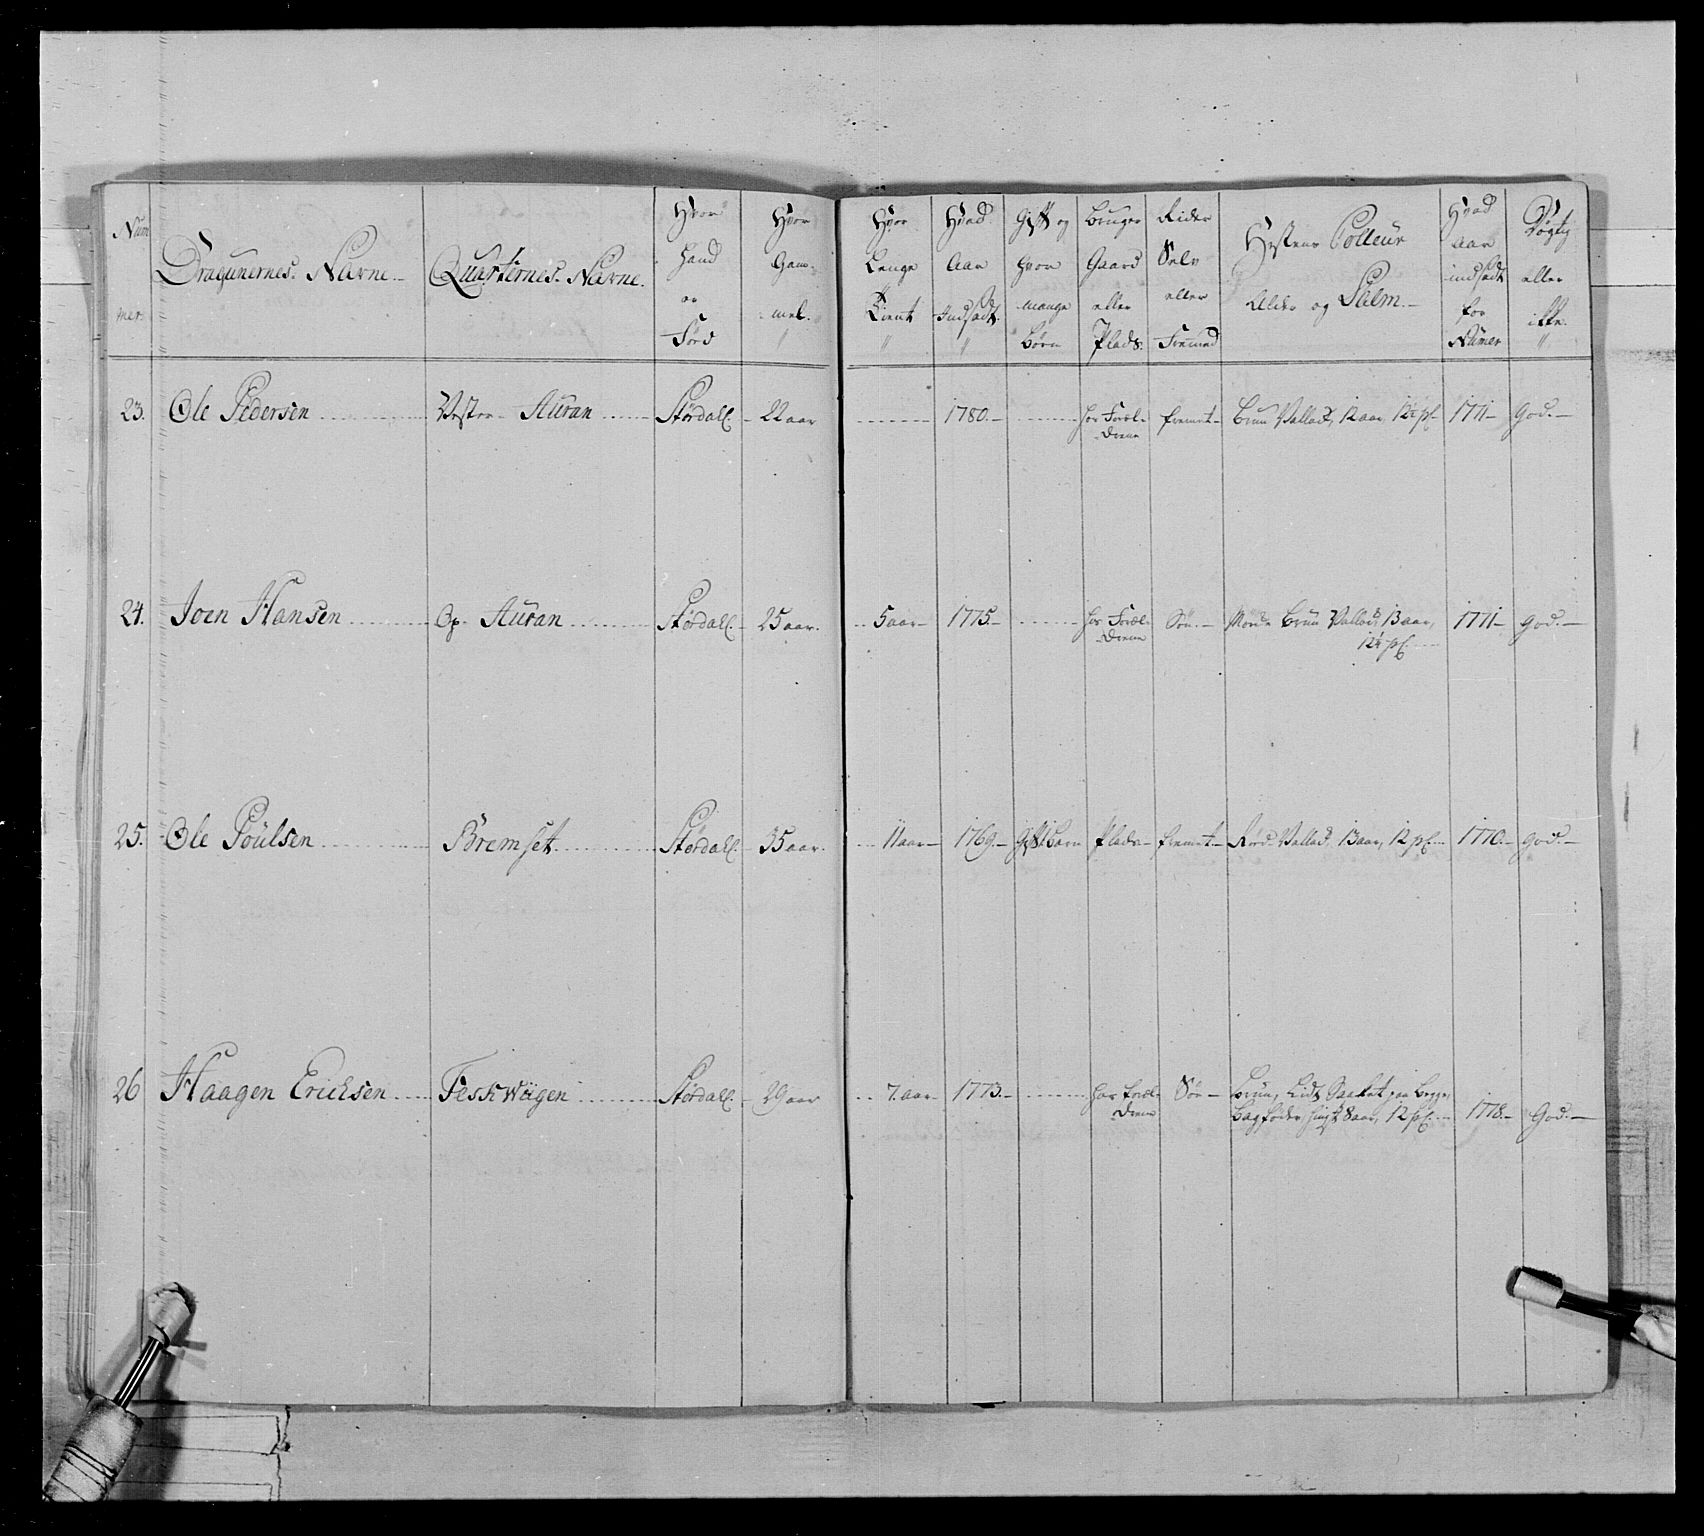 Num mer
Dragunernes Navne
Quarternes Navne.
Hvor hand er Førd
Hvor Gam mel.
Hvor Lenge Tient
Hvad Aar Indsadt.
Gift og hvor mange Børn
Bruger Gaard eller Plads.
Rider Selv eller Fremed
Hestens Colleur Alder og Palm.
Hvad Aar indsadt for Numer
Døgtig eller ikke.
23. Ole Pedersen Vester Auran Størdall. 22 aar 1780. hos Foræl- drene fremet Brun Vallad, 12 aar, 12½ pl 1771 God.
24. Joen Hansen Op. Auran Størdall. 25 aar. 5 aar 1775. hos Foræl- drene Søn. Brun Vallad, 13 aar, 1771 god.
25. Ole Poulsen Bremset Størdall. 35 aar. 11 aar 1769. Gift 1 Barn Plads fremet Rød Vallad 13 aar, 12 pl. 1770. god.
26 Haagen Ericksen Feskwiigen Størdall. 29 aar 7. aar 1773. hos foræl- drene Søn Brun, Lidt paa Begge
Bagføder, hingst 8 aar, 12 pl. 1778. God.